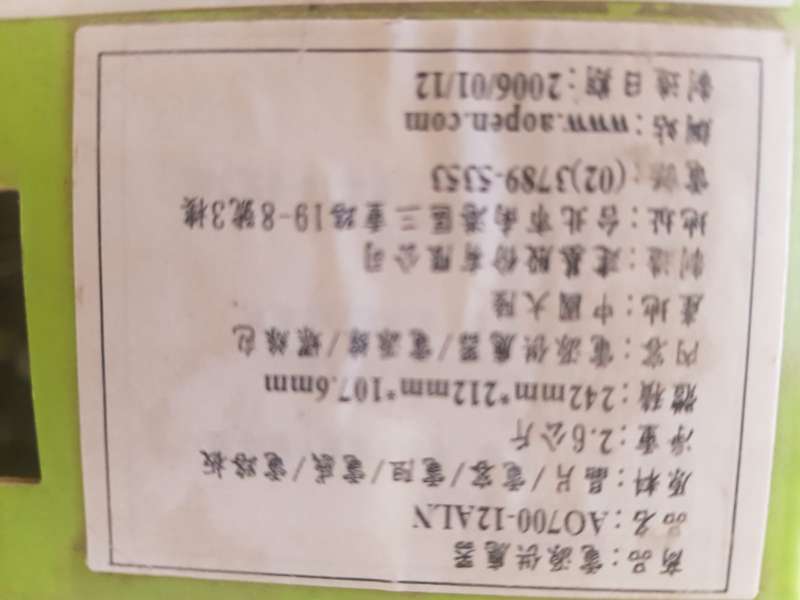 商品：電源供應器
品名：AO700-12ALN
原料：晶片/電容/電阻/電感/電路板
淨重：2.6公斤
體積：242mm*212mm*107.6mm
內容：電源供應器/電源線/螺絲包
產地：中國大陸
制造：建基股份有限公司
地址：台北市南港區三重路19-8號3樓
電話：(02)3789-5353
網站：www.aopen.com
制造日期：2006/01/12